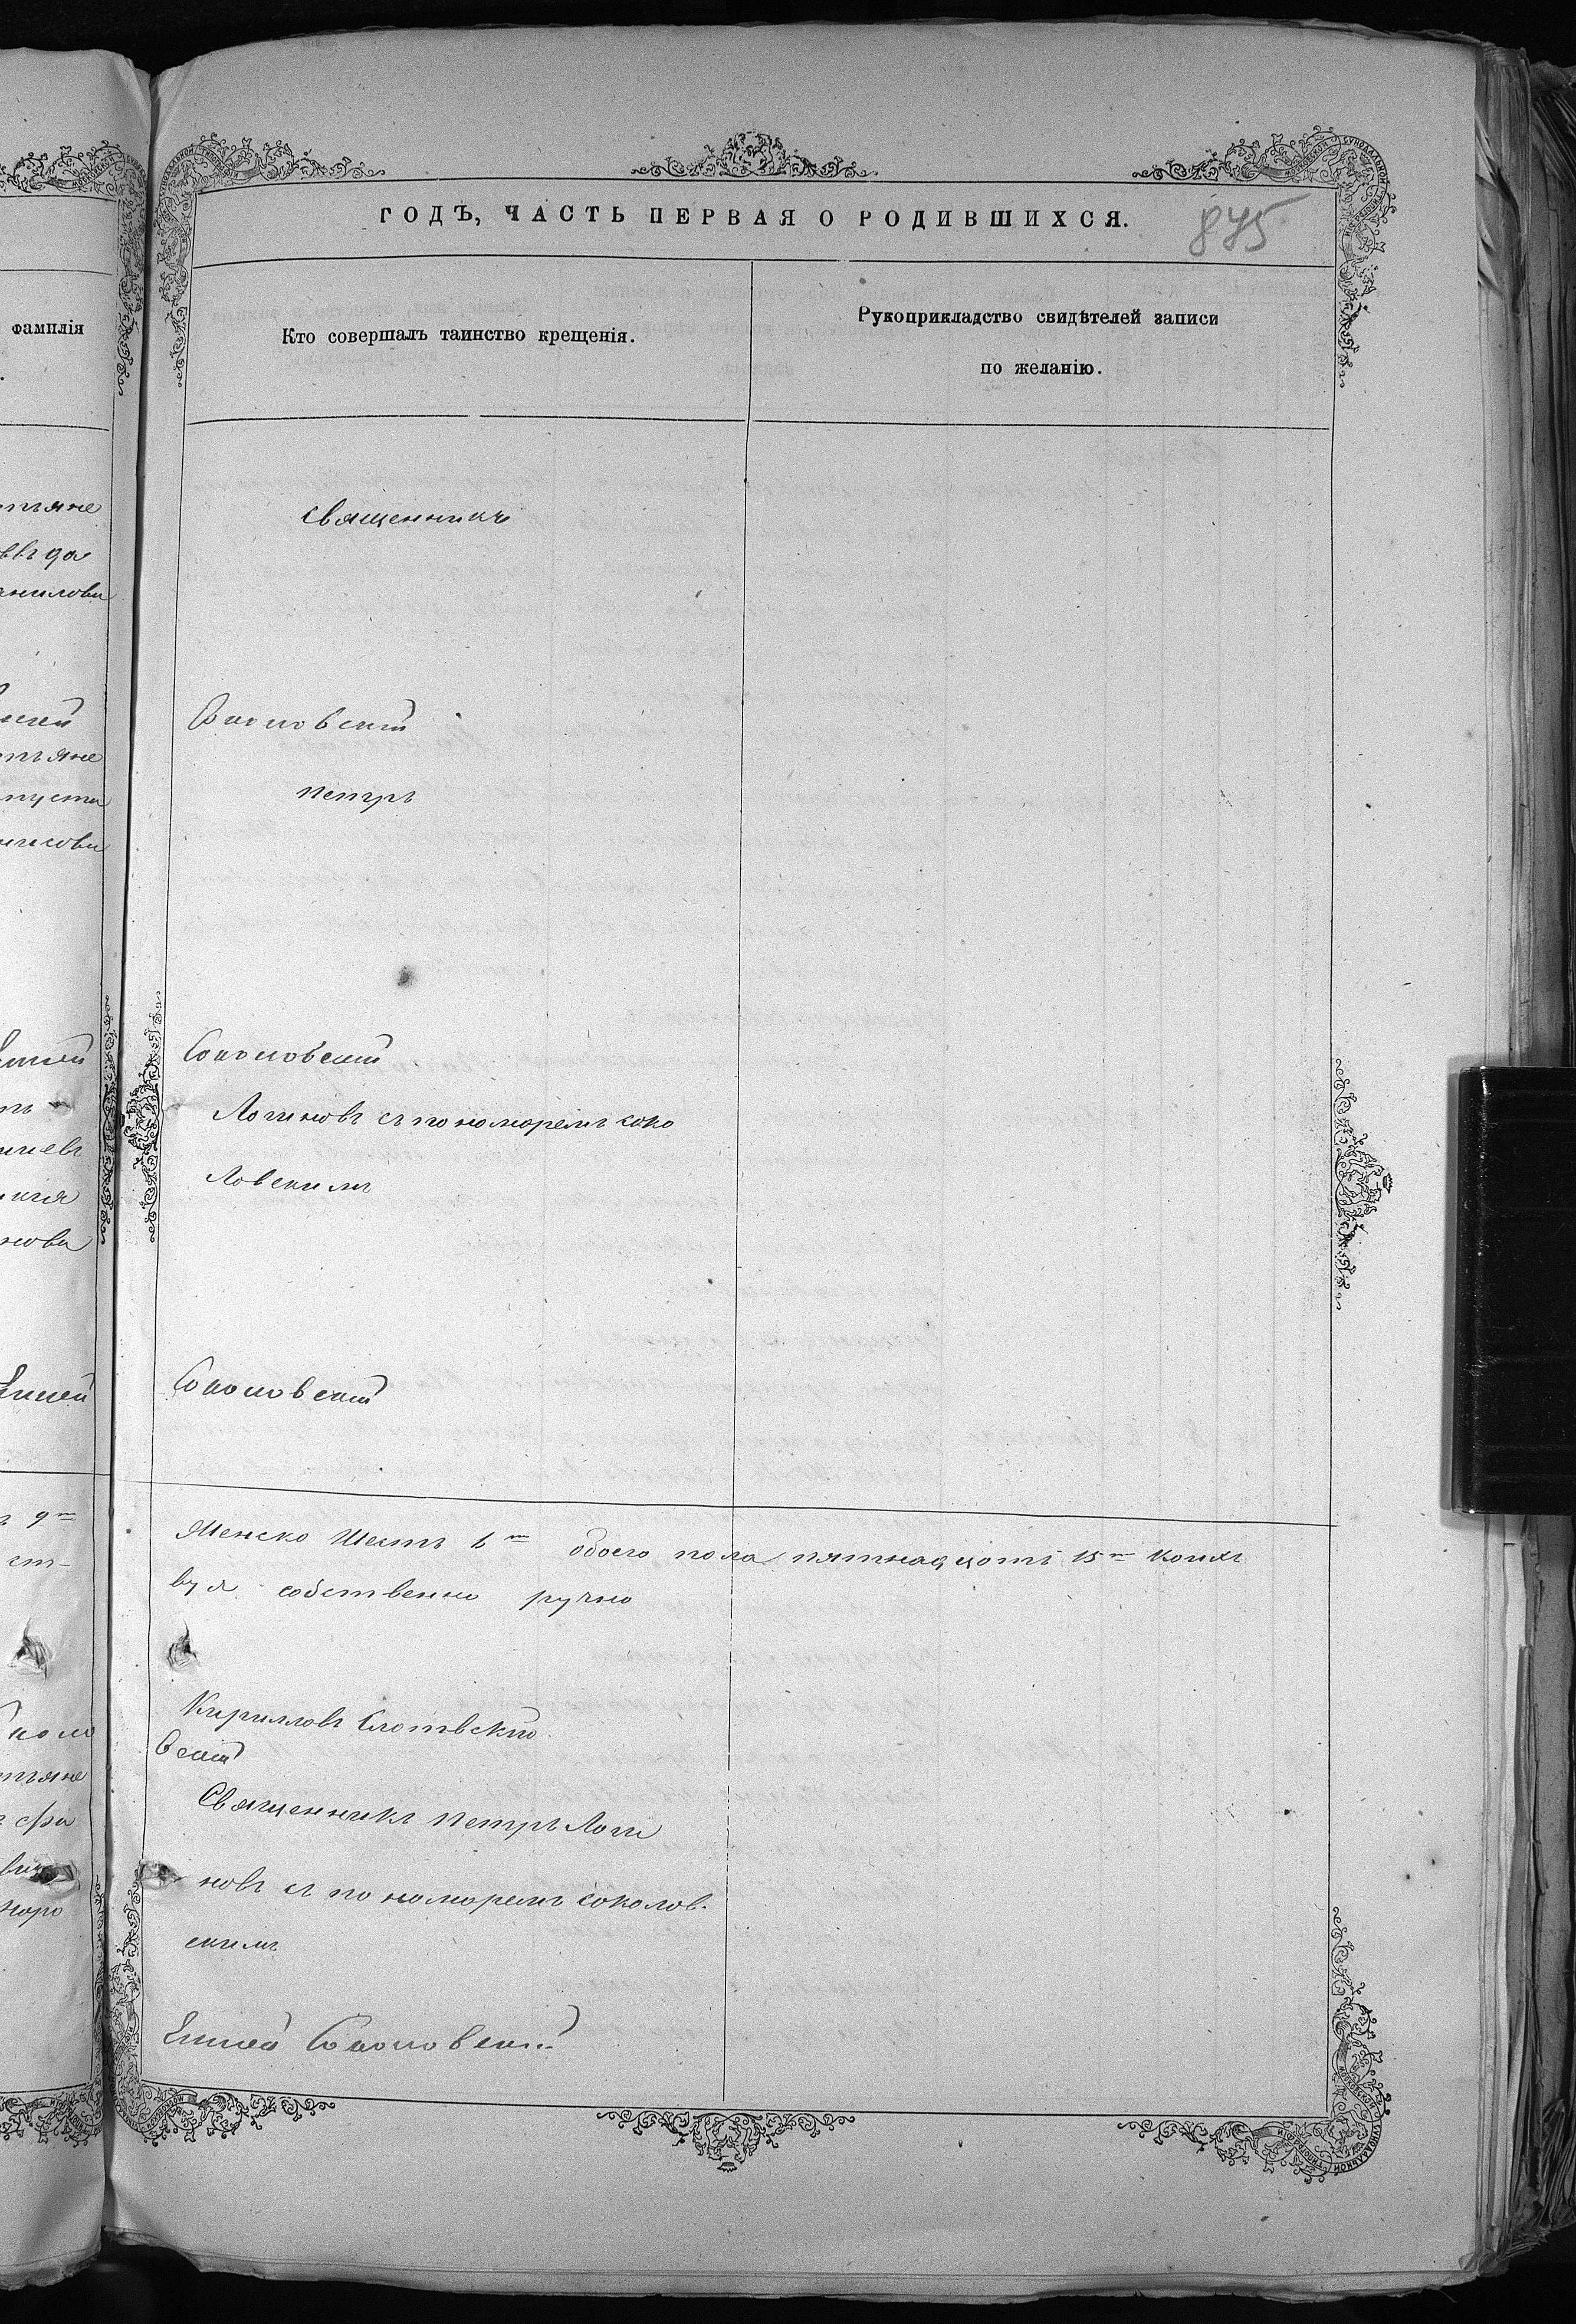 ГОДЪ, ЧАСТЬ ПЕРВАЯ О РОДИВШИХСЯ.
845
фамилія
Кто совершалъ таинство крещенія.
Рукоприкладство свидѣтелей записи
по желанію.
священникъ
Соколовскій
Петръ
Соколовскій
Логиновъ съ пономоремъ соко
Ловскимъ
Соколовскій
Женско Шесть 6ть обоего пола пятнадцоть 15ть коихъ
вуя собственно ручно
Кирилловъ
вскій
Священникъ Петръ Логи
новъ съ пономоремъ соколов.
скимъ
Соколовскій